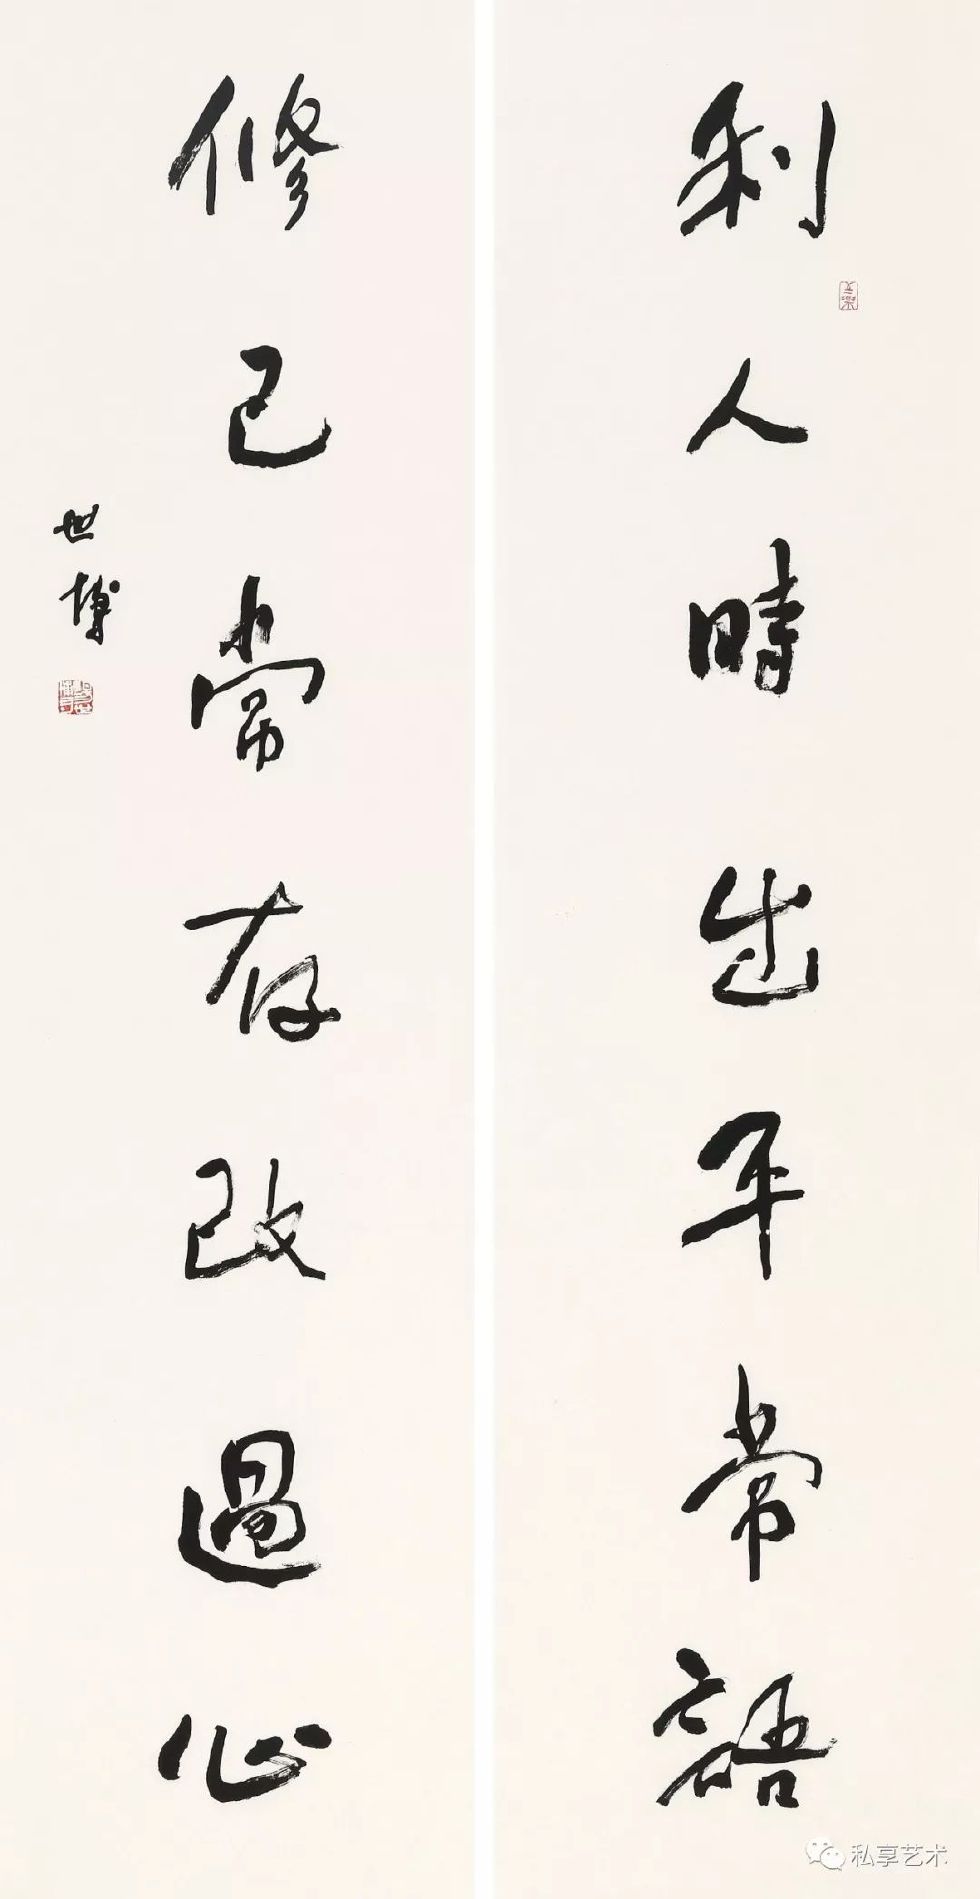 利人時出平常語
修己常存改過心
世博
私享艺术